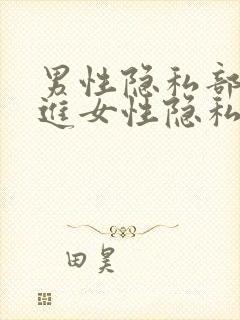 男性隐私部
进女性隐私
田昊